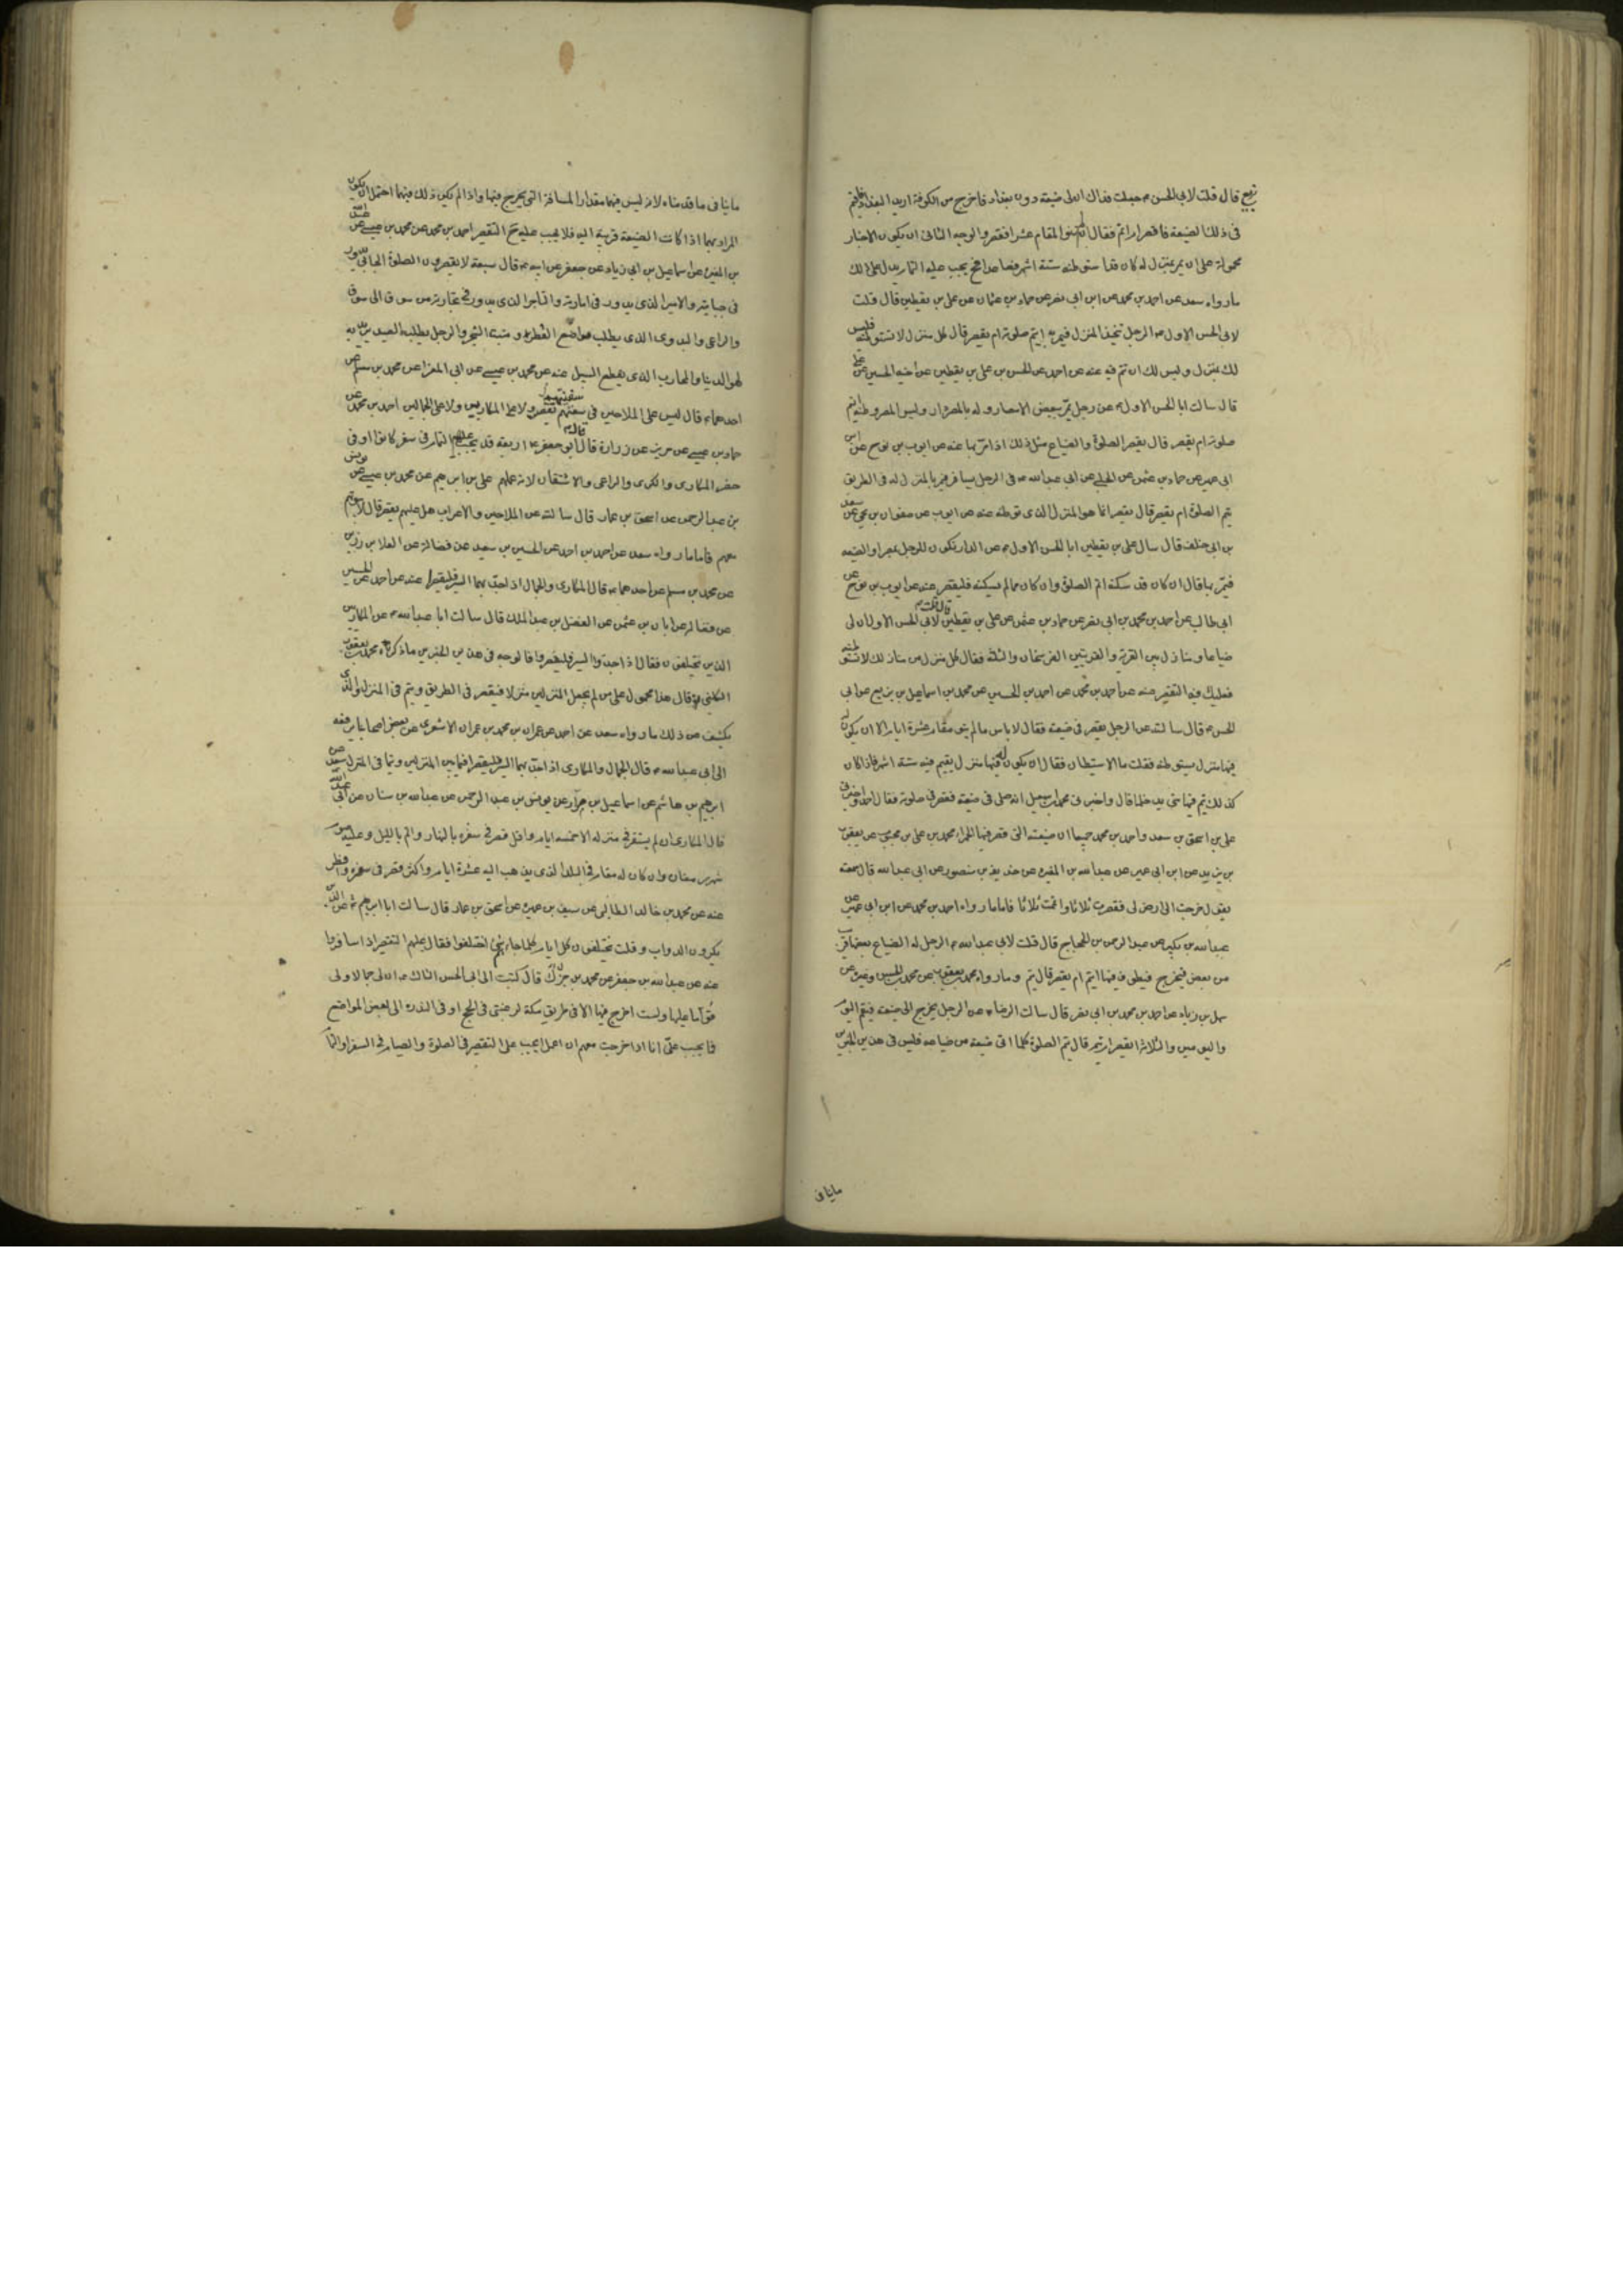 بزيع قال قلت لابي الحسن ع جعلت فداك ان لى ضيعة دون بغداد فاخرج من الكوفة اريد البغداد فاقيم
فى ذلك الضيعة فاقصر ام اتم فقال ان لم تنو المقام عشرا فقصر والوجه الثانى ان يكون الاخبار
محمولة على ان يمر بمنزل له كان قد استوطنه ستة اشهر فصاعدا فح يجب عليه التمام يدل على ذلك
ما رواه سعد عن احمد بن محمد عن ابن ابى نصر عن حماد بن عثمان عن على بن يقطين قال قلت
لابى الحسن الاول ع الرجل يتخذ المنزل فيمر به ايتم صلوته ام يقصر قال كل منزل لا تستوطنه فليس
لك بمنزل وليس لك ان تتم فيه عنه عن احمد عن الحسن بن على بن يقطين عن اخيه الحسين عن على
قال سالت ابا الحسن الاول ع عن رجل يمر ببعض الامصار وله بالمصر دار وليس المصر وطنه ايتم
صلوته ام يقصر قال يقصر الصلوة والضياع مثل ذلك اذا مر بها عنه عن ايوب بن نوح عن ابن
ابى عمير عن حماد بن عثمن عن الحلبى عن ابى عبدالله ع فى الرجل يسافر فيمر بالمنزل له فى الطريق
يتم الصلوة ام يقصر قال يقصر انما هو المنزل الذى توطنه عنه عن ايوب عن صفوان بن يحيى عن سعد
بن ابى خلف قال سال على بن يقطين ابا الحسن الاول ع عن الدار تكون للرجل بمصر او الضيعه
فيمر بها قال ان كان قد سكنه اتم الصلوة وان كان مما لم يسكنه فليقصر عنه عن ايوب بن نوح عن
ابى طالب عن احمد بن محمد بن ابى نصر عن حماد بن عثمن عن على بن يقطين قال قلت لابى الحسن الاول ان لى
ضياعا ومنازل بين القرية والقريتين الفرسخان والثلثة فقال كل منزل من منازلك لا تستوطنه
فعليك فيه التقصير عنه عن احمد بن محمد عن احمد بن الحسين عن محمد بن اسماعيل بن بزيع عن ابى
الحسن ع قال سالته عن الرجل يقصر فى ضيعته فقال لا باس ما لم ينو مقام عشرة ايام الا ان يكون له
فيها منزل يستوطنه فقلت ما الاستيطان فقال ان يكون له فيها منزل يقيم فيه ستة اشهر فاذا كان
كذلك يتم فيها متى يدخلها قال واخبرنى محمد بن اسمعيل انه صلى فى ضيعته فقصر فى صلوته فقال احمد واخبرنى
على بن اسحق بن سعد واحمد بن محمد جميعا ان ضيعته التى قصر فيها الحمراء محمد بن على بن محبوب عن يعقوب
بن يزيد عن ابن ابى عمير عن عبدالله بن المغيره عن حذيفه بن منصور عن ابى عبدالله قال سمعته
يقول خرجت الى ارض لى فقصرت ثلاثا واتممت ثلاثا فاما ما رواه احمد بن محمد عن ابن ابى عمير عن
عبدالله بن بكير عن عبد الرحمن بن الحجاج قال قلت لابى عبدالله ع الرجل له الضياع بعضها قريب
من بعض فيخرج فيطوف فيها ايتم ام يقصر قال يتم وما رواه محمد بن يعقوب عن محمد بن الحسن وغيره عن
سهل بن زياد عن احمد بن محمد بن ابى نصر قال سالت الرضا ع عن الرجل يخرج الى ضيعته فيقيم اليوم
واليومين والثلاثة ايقصر ام يتم قال يتم الصلوة كلما اتى ضيعة من ضياعه فليس فى هذين الخبرين
ما ينافى
ما ينافى ما قدمناه لانه ليس فيهما مقدار المسافة التى يخرج فيها واذا لم يكن ذلك فيهما احتمل ان يكون
المراد بهما اذا كانت الضيعة قريبة اليه فلا يجب عليه ح التقصير احمد بن محمد عن محمد بن عيسى عن عبد الله
بن المغيره عن اسماعيل بن ابى زياد عن جعفر عن ابيه ع قال سبعة لا يقصرون الصلوة الجابى يدور
فى جبايته والامير الذى يدور فى امارته والتاجر الذى يدور فى تجارته من سوق الى سوق
والراعى والبدوى الذى يطلب مواضع القطر ومنبت الشجر والرجل يطلب الصيد يريد به
لهو الدنيا والمحارب الذى يقطع السبيل عنه عن محمد بن عيسى عن ابى المغرا عن محمد بن مسلم عن
احدهما ع قال ليس على الملاحين فى سفينتهم تقصير ولا على المكارين ولا على الجمالين احمد بن محمد عن
حماد بن عيسى عن حريز عن زرارة قال قال ابو جعفر ع اربعة قد يجب عليهم التمام فى سفر كانوا او فى
حضر المكارى والكرى والراعى والاشتقان لانه عملهم على بن ابرهيم عن محمد بن عيسى عن يونس
بن عبد الرحمن عن اسحق بن عمار قال سالته عن الملاحين والاعراب هل عليهم تقصير قال لا بيوتهم
معهم فاما ما رواه سعد عن احمد بن احمد عن الحسين بن سعيد عن فضالة عن العلا بن رزين
عن محمد بن مسلم عن احدهما ع قال المكارى والجمال اذا جد بهما السير فليقصرا عنه عن احمد عن الحسين
عن فضاله عن ابان بن عثمن عن الفضل بن عبد الملك قال سالت ابا عبدالله ع عن المكارين
الذين يختلفون فقال اذا جدوا السير فليقصروا فالوجه فى هذين الخبرين ما ذكره محمد بن يعقوب
الكلينى ره قال هذا محمول على من لم يجعل المنزلين منزلا فيقصر فى الطريق ويتم فى المنزل والذى
يكشف عن ذلك ما رواه سعد عن احمد عن عمران بن محمد بن عمران الاشعرى عن بعض اصحابنا يرفعه
الى ابى عبدالله ع قال الجمال والمكارى اذا جد بهما السير فليقصرا فيما بين المنزلين ويتما فى المنزل سعد عن
ابرهيم بن هاشم عن اسماعيل بن مرار عن يونس بن عبد الرحمن عن عبدالله بن سنان عن ابى عبدالله
قال المكارى ان لم يستقر فى منزله الا خمسة ايام واقل قصر فى سفره بالنهار واتم بالليل وعليه صوم
شهر رمضان وان كان له مقام فى البلد الذى يذهب اليه عشرة ايام واكثر قصر فى سفره وافطر
عنه عن محمد بن خالد الطيالسى عن سيف بن عميره عن اسحق بن عمار قال سالت ابا ابرهيم ع عن الذين
يكرون الدواب وقلت يختلفون كل ايام كلما جاءهم شئ اختلفوا فقال عليهم التقصير اذا سافروا
عنه عن عبدالله بن جعفر عن محمد بن جزك قال كتبت الى ابى الحسن الثالث ع ان لى جمالا ولى
قوّاما عليها ولست اخرج فيها الا فى طريق مكة لرغبتى فى الحج او فى الندرة الى بعض المواضع
فما يجب علىّ انا اذا خرجت معهم ان اعمل ايجب على التقصير فى الصلوة والصيام فى السفر او التمام